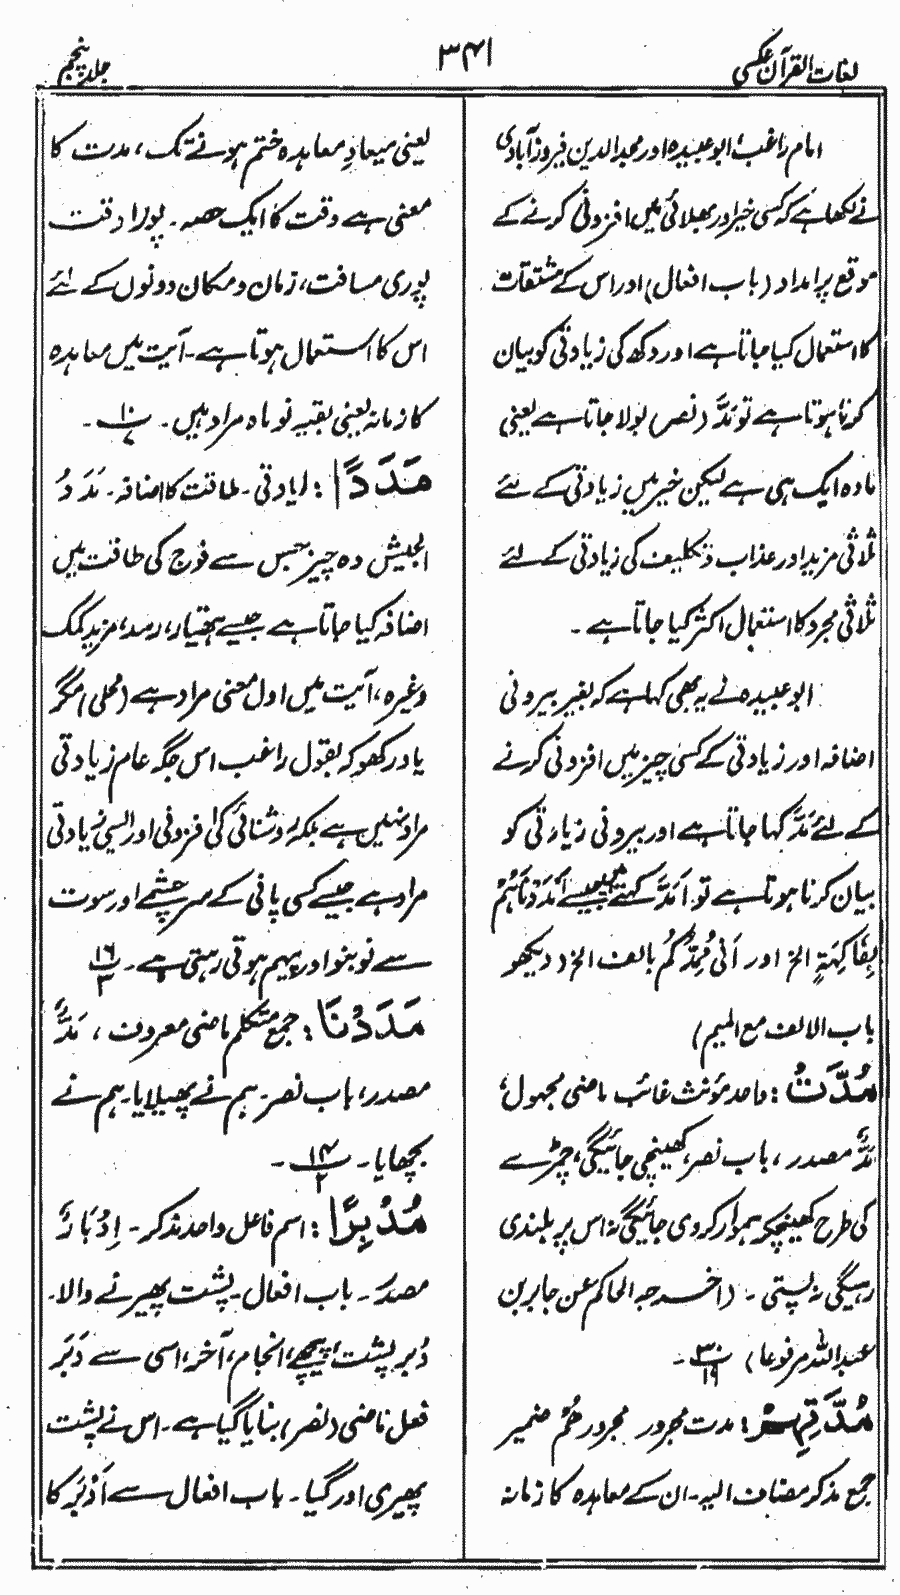 لغات القرآن عکسی
۳۴۱
جلد پنجم
امام راغبؒ ابوعبیدہ اور مجدالدین فیروزآبادی
نے لکھا ہے کہ کسی خیر اور بھلائی میں افزونی کرنے کے
موقع پر امداد (باب افعال) اور اس کے مشتقات
کا استعمال کیا جاتا ہے اور دکھ کی زیادتی کو بیان
کرنا ہوتا ہے تو مَدَّ (نصر) بولا جاتا ہے یعنی
مادہ ایک ہی ہے لیکن خیر میں زیادتی کے لئے
ثلاثی مزید اور عذاب و تکلیف کی زیادتی کے لئے
ثلاثی مجرد کا استعمال اکثر کیا جاتا ہے۔
ابوعبیدہ نے یہ بھی کہا ہے کہ بغیر بیرونی
اضافہ اور زیادتی کے کسی چیز میں افزونی کرنے
کے لئے مَدَّ کہا جاتا ہے اور بیرونی زیادتی کو
بیان کرنا ہوتا ہے تو اَمَدَّ کہتے ہیں جیسے اَمْدَدْنَاهُمْ
بِفَاكِهَةٍ الخ اور اَنِّی مُمِدُّكُمْ بالف الخ (دیکھو
باب الالف مع المیم)
مُدَّتْ : واحد مؤنث غائب ماضی مجہول
مَدٌّ مصدر، باب نصر، کھینچی جائیگی، چمڑے
کی طرح کھینچکر ہموار کردی جائیگی نہ اس پر بلندی
رہیگی نہ پستی۔ (اخرجہ الحاکم عن جابر بن
عبداللہ مرفوعا) ۳۰/۱۹۔
مُدَّتِهِمْ : مدت مجرور مجرور هُمْ ضمیر
جمع مذکر مضاف الیہ۔ ان کے معاہدہ کا زمانہ
یعنی میعادِ معاہدہ ختم ہونے تک، مدت کا
معنی ہے وقت کا ایک حصہ۔ پورا وقت
پوری مسافت، زمان و مکان دونوں کے لئے
اس کا استعمال ہوتا ہے۔ آیت میں معاہدہ
کا زمانہ یعنی بقیہ نو ماہ مراد ہیں۔ ۱۰/۷۔
مَدَدًا : زیادتی۔ طاقت کا اضافہ۔ مَدَدُ
الجیش وہ چیز جس سے فوج کی طاقت میں
اضافہ کیا جاتا ہے جیسے ہتھیار، رسد، مزید کمک
وغیرہ، آیت میں اول معنی مراد ہے (محلی) مگر
یاد رکھو کہ بقول راغب اس جگہ عام زیادتی
مراد نہیں ہے بلکہ روشنائی کی افزونی اور ایسی زیادتی
مراد ہے جیسے کسی پانی کے سرچشمے اور سوت
سے نو بنو اور پیہم ہوتی رہتی ہے۔ ۱۶/۳
مَدَدْنَا : جمع متکلم ماضی معروف، مَدٌّ
مصدر، باب نصر۔ ہم نے پھیلایا۔ ہم نے
بچھایا۔ ۱۴/۲۔
مُدْبِرًا : اسم فاعل واحد مذکر۔ اِدْبَارٌ
مصدر۔ باب افعال۔ پشت پھیرنے والا۔
دُبر پشت، پیچھے، انجام، آخر، اسی سے دَبَرَ
فعل ماضی (نصر) بنایا گیا ہے۔ اس نے پشت
پھیری اور گیا۔ باب افعال سے اَدْبَرَ کا